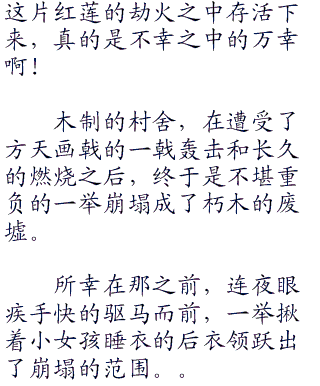 这片红莲的劫火之中存活下
来，真的是不幸之中的万幸
啊！
木制的村舍，在遭受了
方天画戟的一戟轰击和长久
的燃烧之后，终于是不堪重
负的一举崩塌成了朽木的废
墟。
所幸在那之前，连夜眼
疾手快的驱马而前，一举揪
着小女孩睡衣的后衣领跃出
了崩塌的范围。。